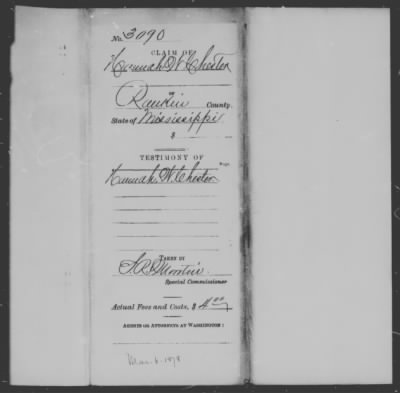 No. 3090
CLAIM OF
Hannah W. Chester
OF
Rankin County
State of Mississippi
$
TESTIMONY OF
Page.
Hannah W. Chester
TAKEN BY
Special Commissioner
Actual Fees and Costs, $ 4.00
AGENTS OR ATTORNEYS AT WASHINGTON:
Mar. 6. 1878